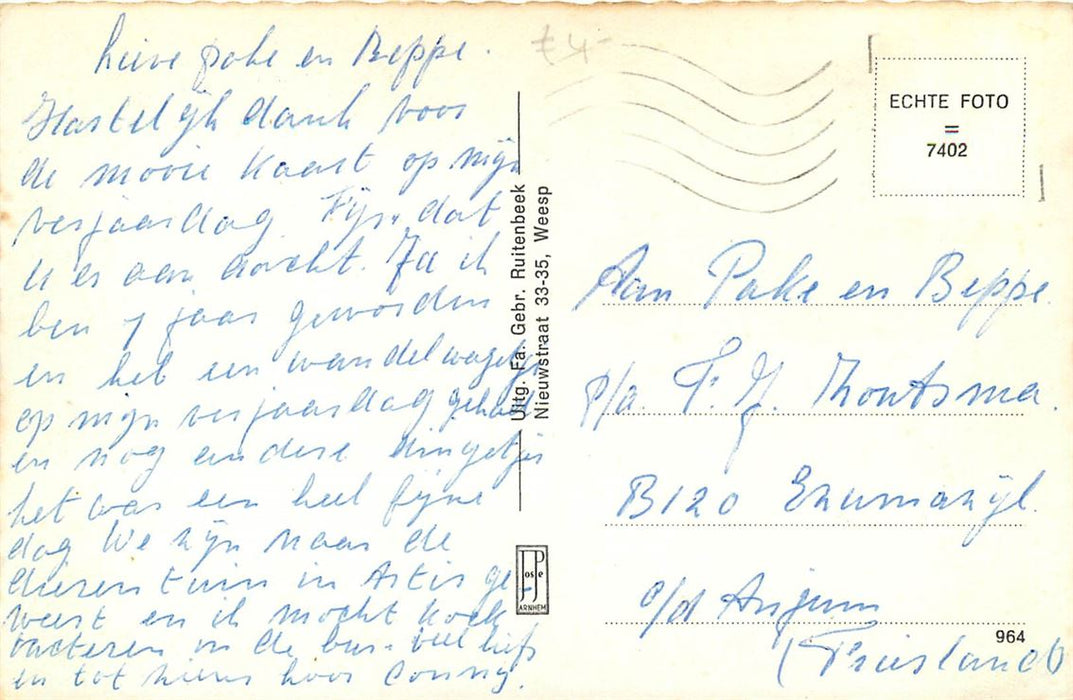 lieve pake en Beppe.
Hartelijk dank voor
de mooie kaart op mijn
verjaardag. Fijn dat
u er aan dacht. Ja ik
ben 7 jaar geworden
en heb een wandelwagetje
op mijn verjaardag gehad
en nog andere dingetjes
het was een heel fijne
dag We zijn naar de
dierentuin in Artis ge-
weest en ik mocht
in de bus. veel liefs
en tot hiens hoor Conny.
£ 4-
Uitg. Fa. Gebr. Ruitenbeek
Nieuwstraat 33-35, Weesp
JosPe
ARNHEM
ECHTE FOTO
=
7402
Aan Pake en Beppe.
p/a. T. J. Zoutsma.
B120 Ezumazijl.
o/d Anjum
(Friesland)
964